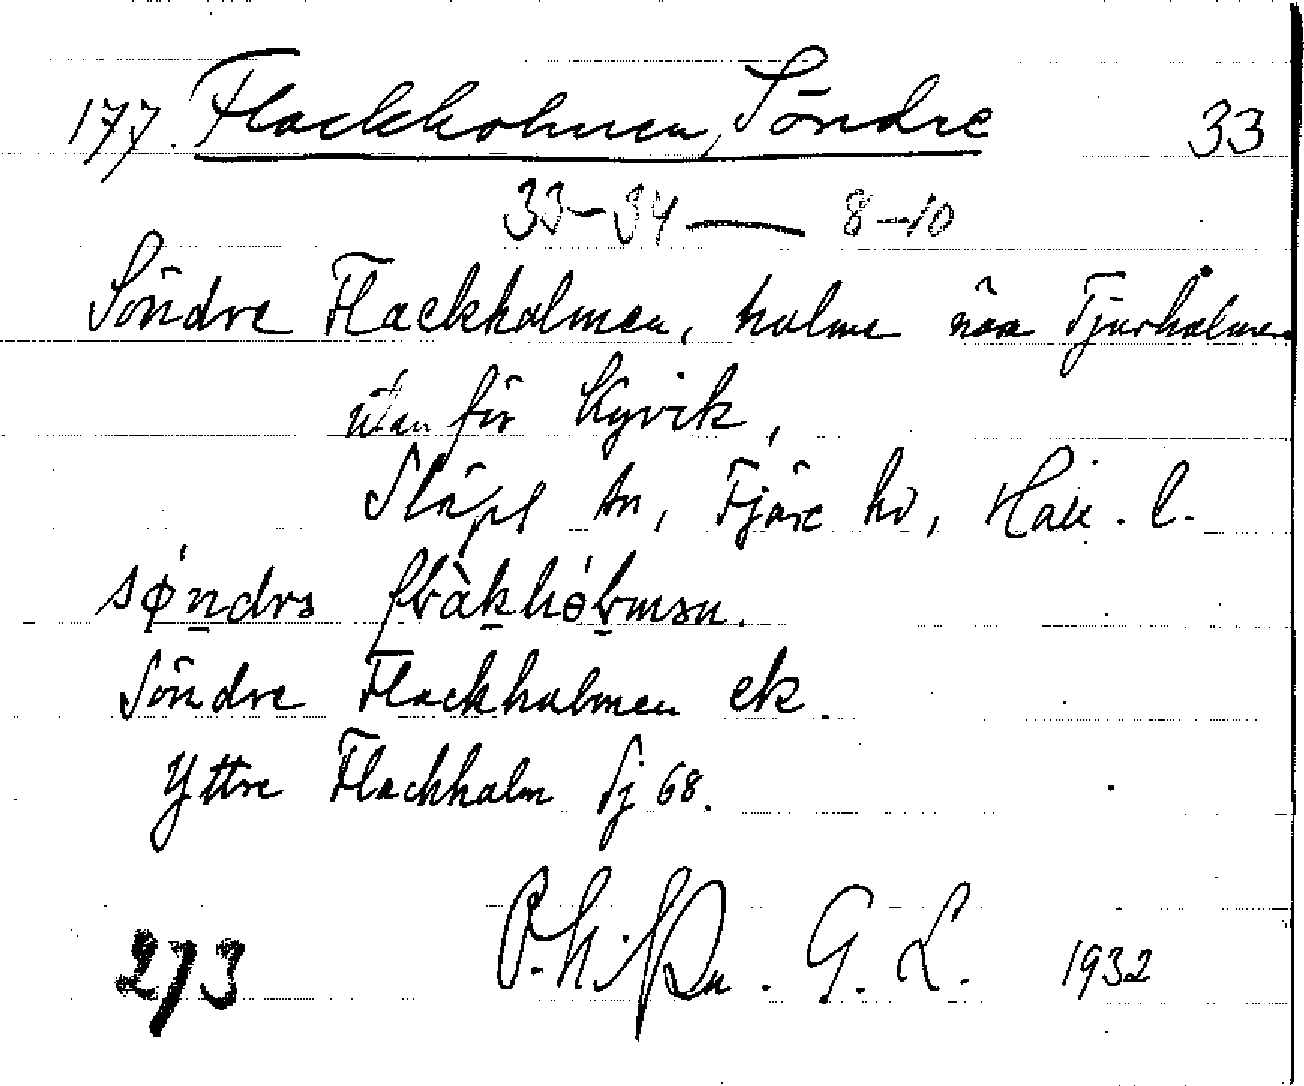 177. Flackholmen, Söndre 33
33-34 — 8-10
Söndre Flackholmen, holme nära Tjurholmen
utanför Kyvik,
Släps sn, Fjäre hd, Hall. l.
Söndre Flackholmen ek.
Yttre Flackholm Sj 68.
273 G. L. 1932